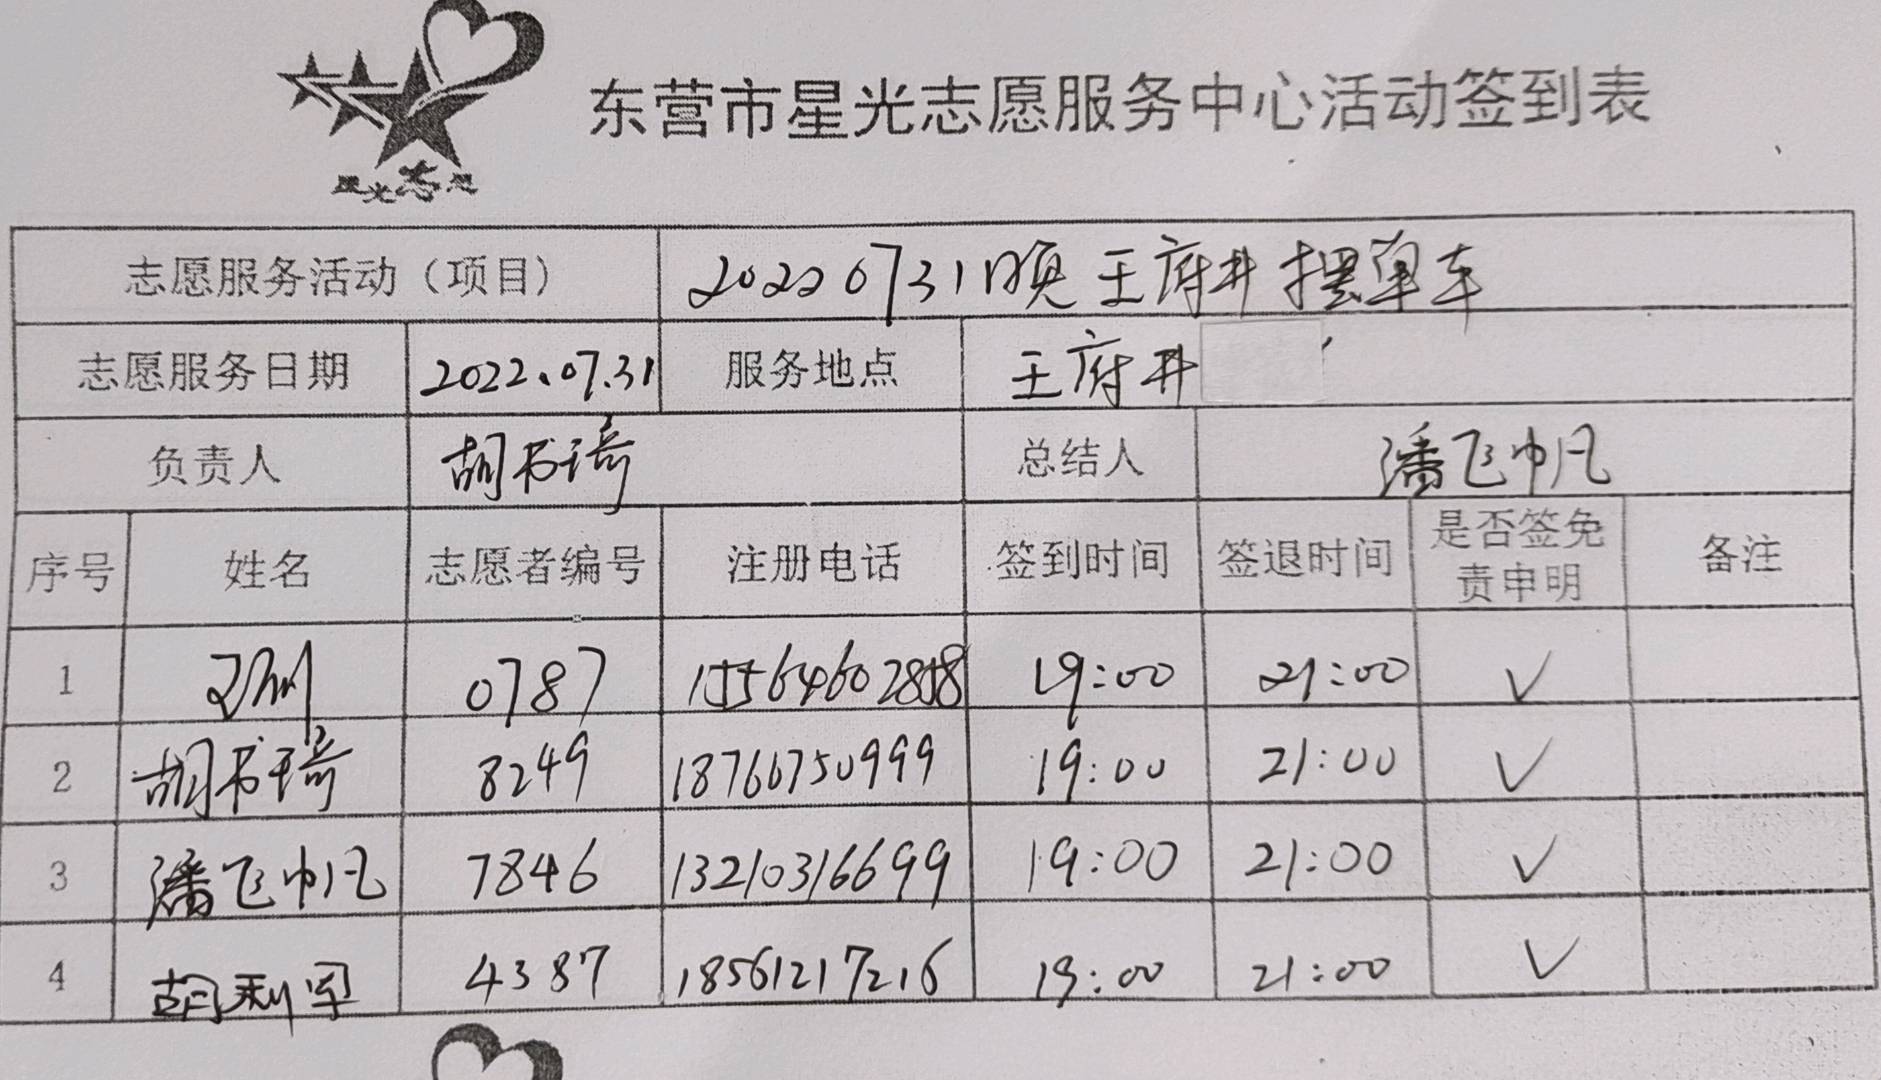 星光志愿
东营市星光志愿服务中心活动签到表
志愿服务活动（项目） 20220731 顺王府井摆单车
志愿服务日期 2022.07.31 服务地点 王府井
负责人 胡书琦 总结人 潘飞帆
序号 姓名 志愿者编号 注册电话 签到时间 签退时间 是否签免责申明 备注
1 0787 15564602858 19:00 21:00 ✓
2 胡书琦 8249 18766750999 19:00 21:00 ✓
3 潘飞帆 7846 13210316699 19:00 21:00 ✓
4 胡利军 4387 18561217216 19:00 21:00 ✓